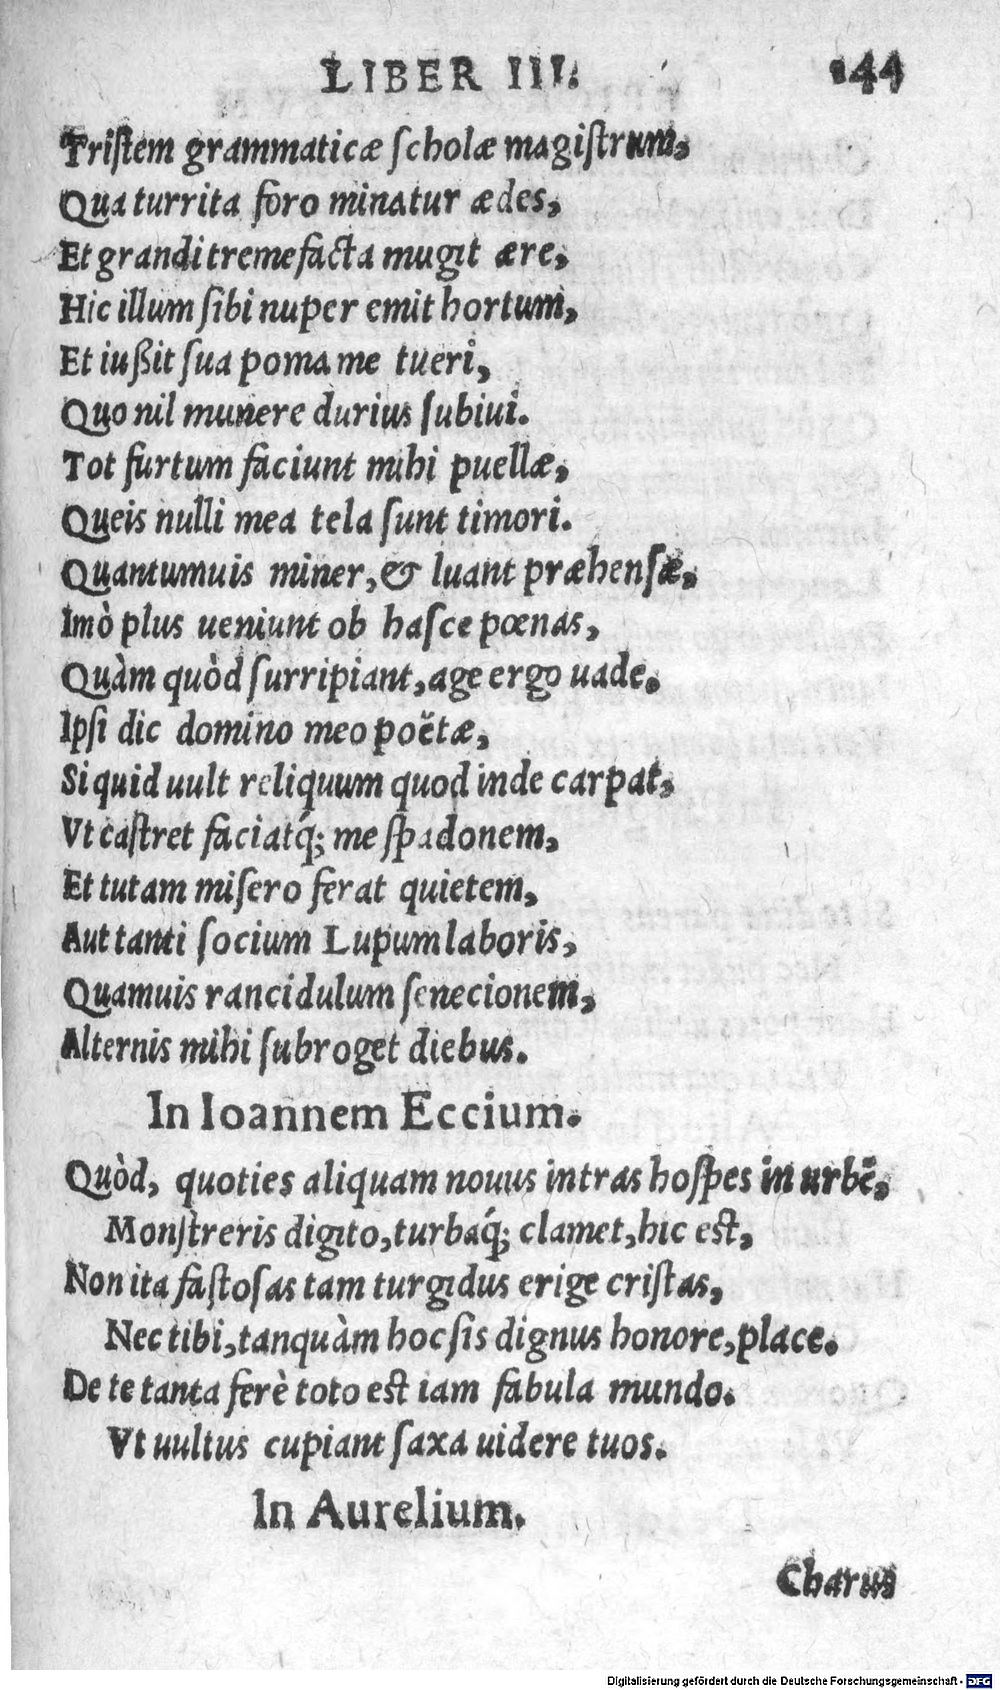 LIBER III. 144
Tristem grammaticæ scholæ magistrum,
Qua turrita foro minatur ædes,
Et grandi tremefacta mugit ære,
Hic illum sibi nuper emit hortum,
Et iußit sua poma me tueri,
Quo nil munere durius subiui.
Tot furtum faciunt mihi puellæ,
Queis nulli mea tela sunt timori.
Quantumuis miner, & luant præhensæ,
Imò plus ueniunt ob hasce pœnas,
Quàm quòd surripiant, age ergo uade.
Ipsi dic domino meo poëtæ,
Si quid uult reliquum quod inde carpat,
Vt castret faciatq́; me spadonem,
Et tutam misero ferat quietem,
Aut tanti socium Lupum laboris,
Quamuis rancidulum senecionem,
Alternis mihi subroget diebus.
In Ioannem Eccium.
Quòd, quoties aliquam nouus intras hospes in urbē,
Monstreris digito, turbaq́; clamet, hic est,
Non ita fastosas tam turgidus erige cristas,
Nec tibi, tanquàm hoc sis dignus honore, place.
De te tanta ferè toto est iam fabula mundo.
Vt uultus cupiant saxa uidere tuos.
In Aurelium.
Charus
Digitalisierung gefördert durch die Deutsche Forschungsgemeinschaft - DFG